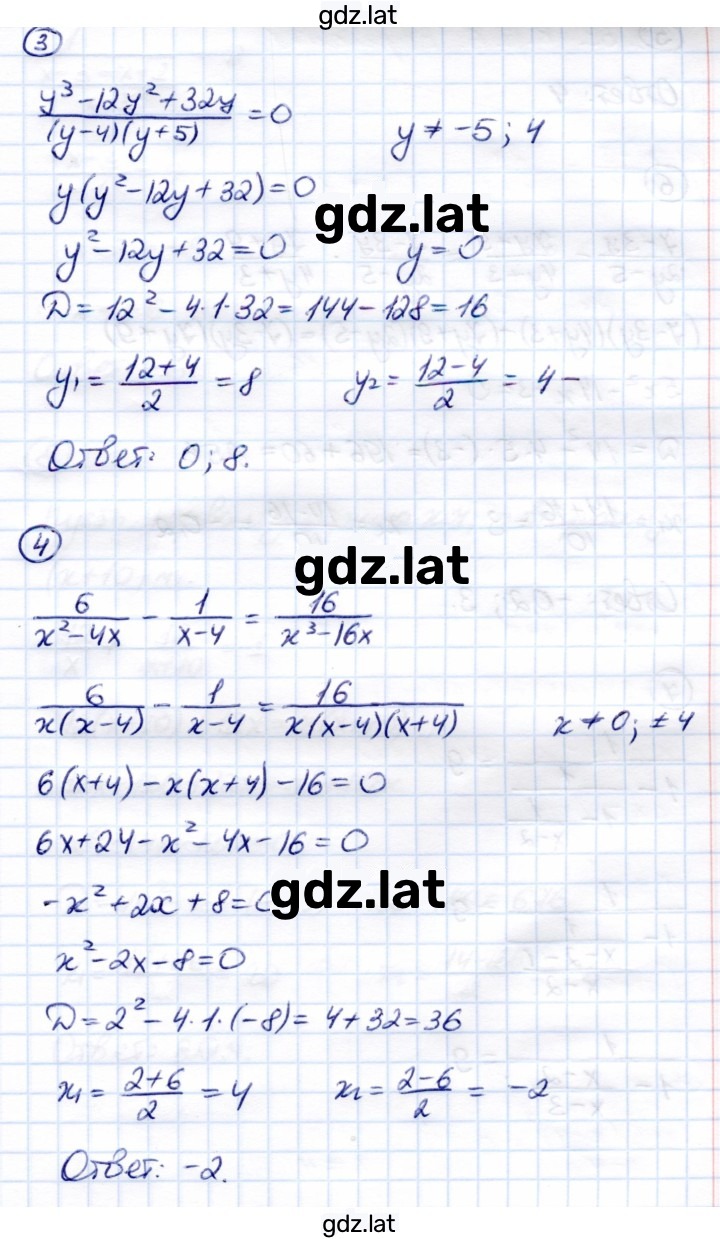 gdz.lat
3
y³-12y²+32y / (y-4)(y+5) = 0 y ≠ -5; 4
y(y²-12y+32)=0
gdz.lat
y²-12y+32=0 y=0
D=12²-4·1·32=144-128=16
y₁ = 12+4 / 2 = 8 y₂ = 12-4 / 2 = 4 -
Ответ: 0; 8.
4
gdz.lat
6 / x²-4x - 1 / x-4 = 16 / x³-16x
6 / x(x-4) - 1 / x-4 = 16 / x(x-4)(x+4) x ≠ 0; ±4
6(x+4)-x(x+4)-16=0
6x+24-x²-4x-16=0
-x²+2x+8=0
gdz.lat
x²-2x-8=0
D=2²-4·1·(-8)=4+32=36
x₁ = 2+6 / 2 = 4 x₂ = 2-6 / 2 = -2
Ответ: -2.
gdz.lat